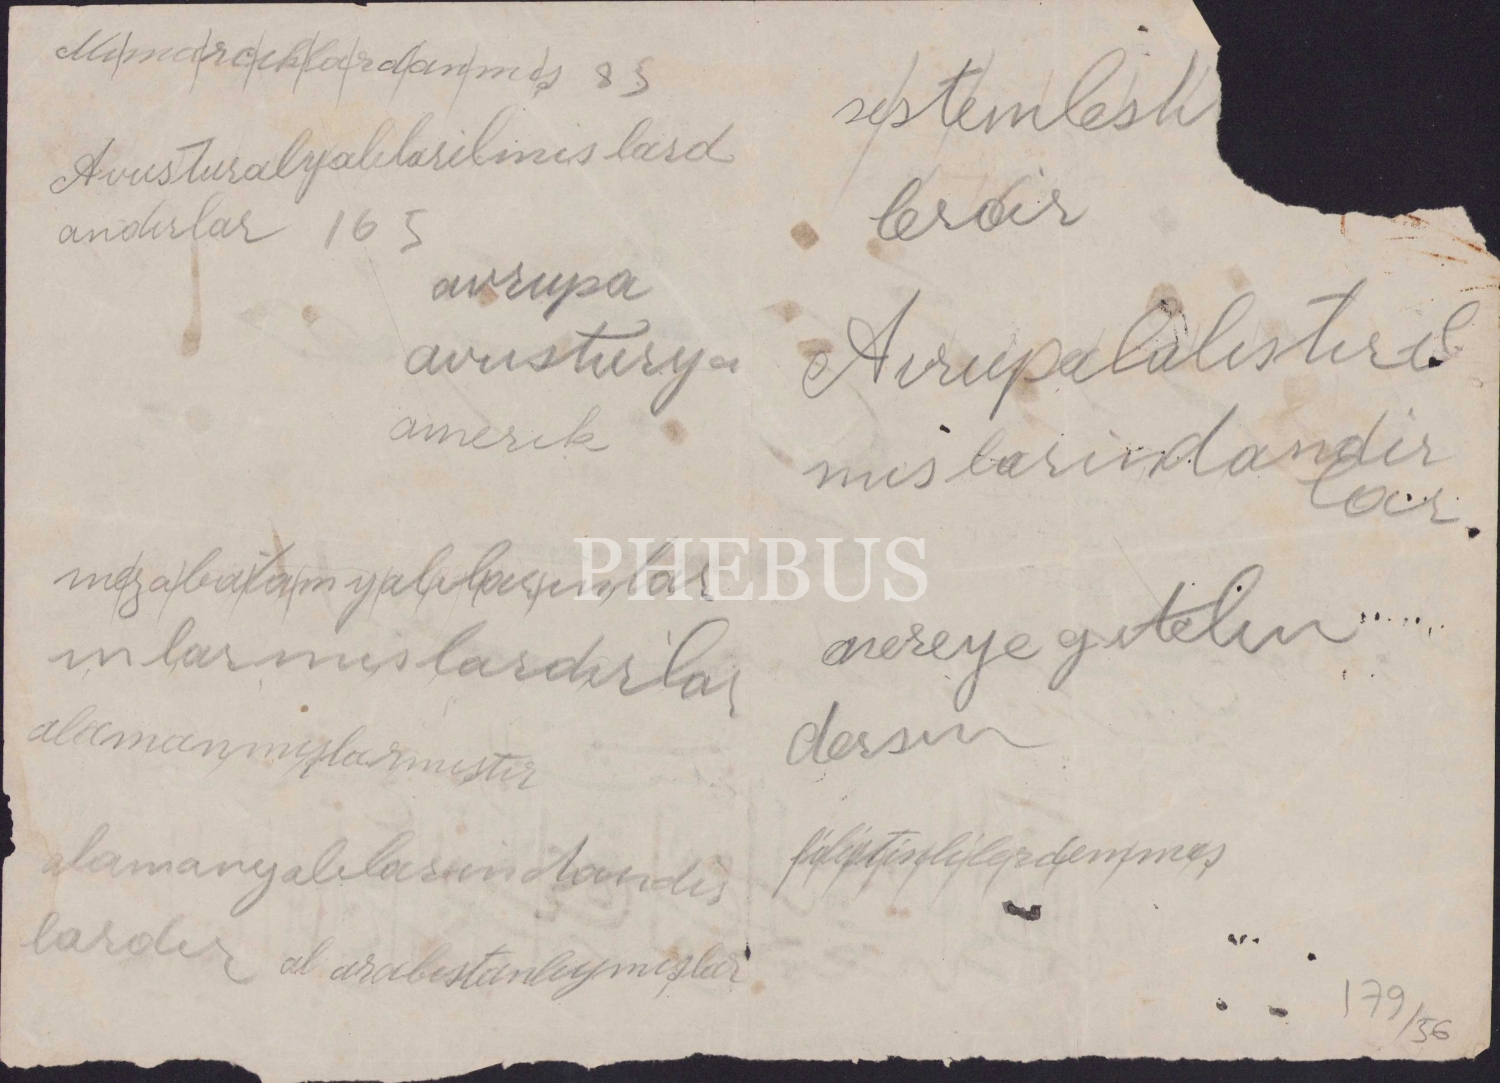 Mimarcıklardanmış 85
Avusturalyalılarilmislard
andırlar 165
avrupa
avusturya
amerik
mezabatamyalılarınlar
ınlarmıslardırlar
alamanmışlarmıstır
alamanyalılarındandır
lardır al arabıstanlıymışlar
sıstemlesk
lerdir
Avrupalılıstırıl
mıslarindandir
lar
nereye gıtelın
dersın
filistinlilerdenmış
179/56
PHEBUS